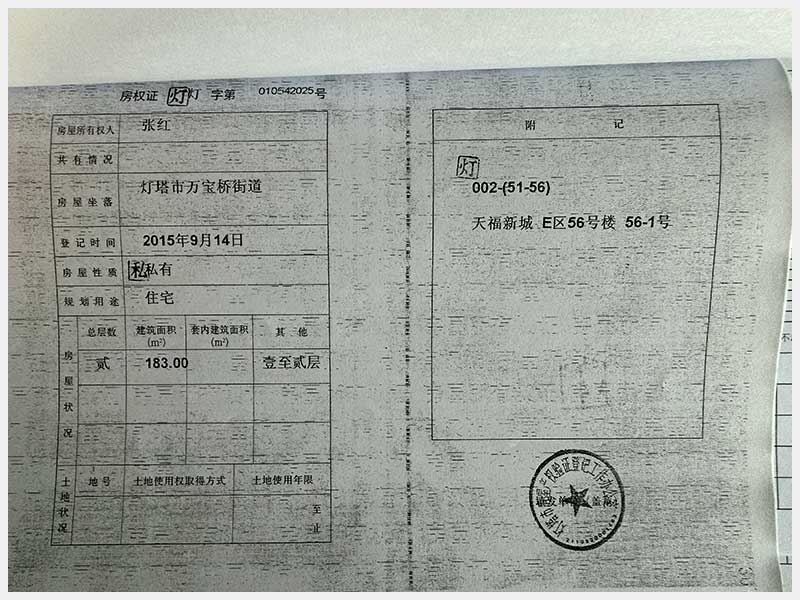 房权证 灯 灯 字第 010542025 号
房屋所有权人 张红
共有情况
房屋坐落 灯塔市万宝桥街道
登记时间 2015年9月14日
房屋性质 私 私有
规划用途 住宅
房屋状况
总层数 建筑面积(m²) 套内建筑面积(m²) 其他
贰 183.00 壹至贰层
土地状况
地号 土地使用权取得方式 土地使用年限
至
止
附 记
灯
002-(51-56)
天福新城 E区56号楼 56-1号